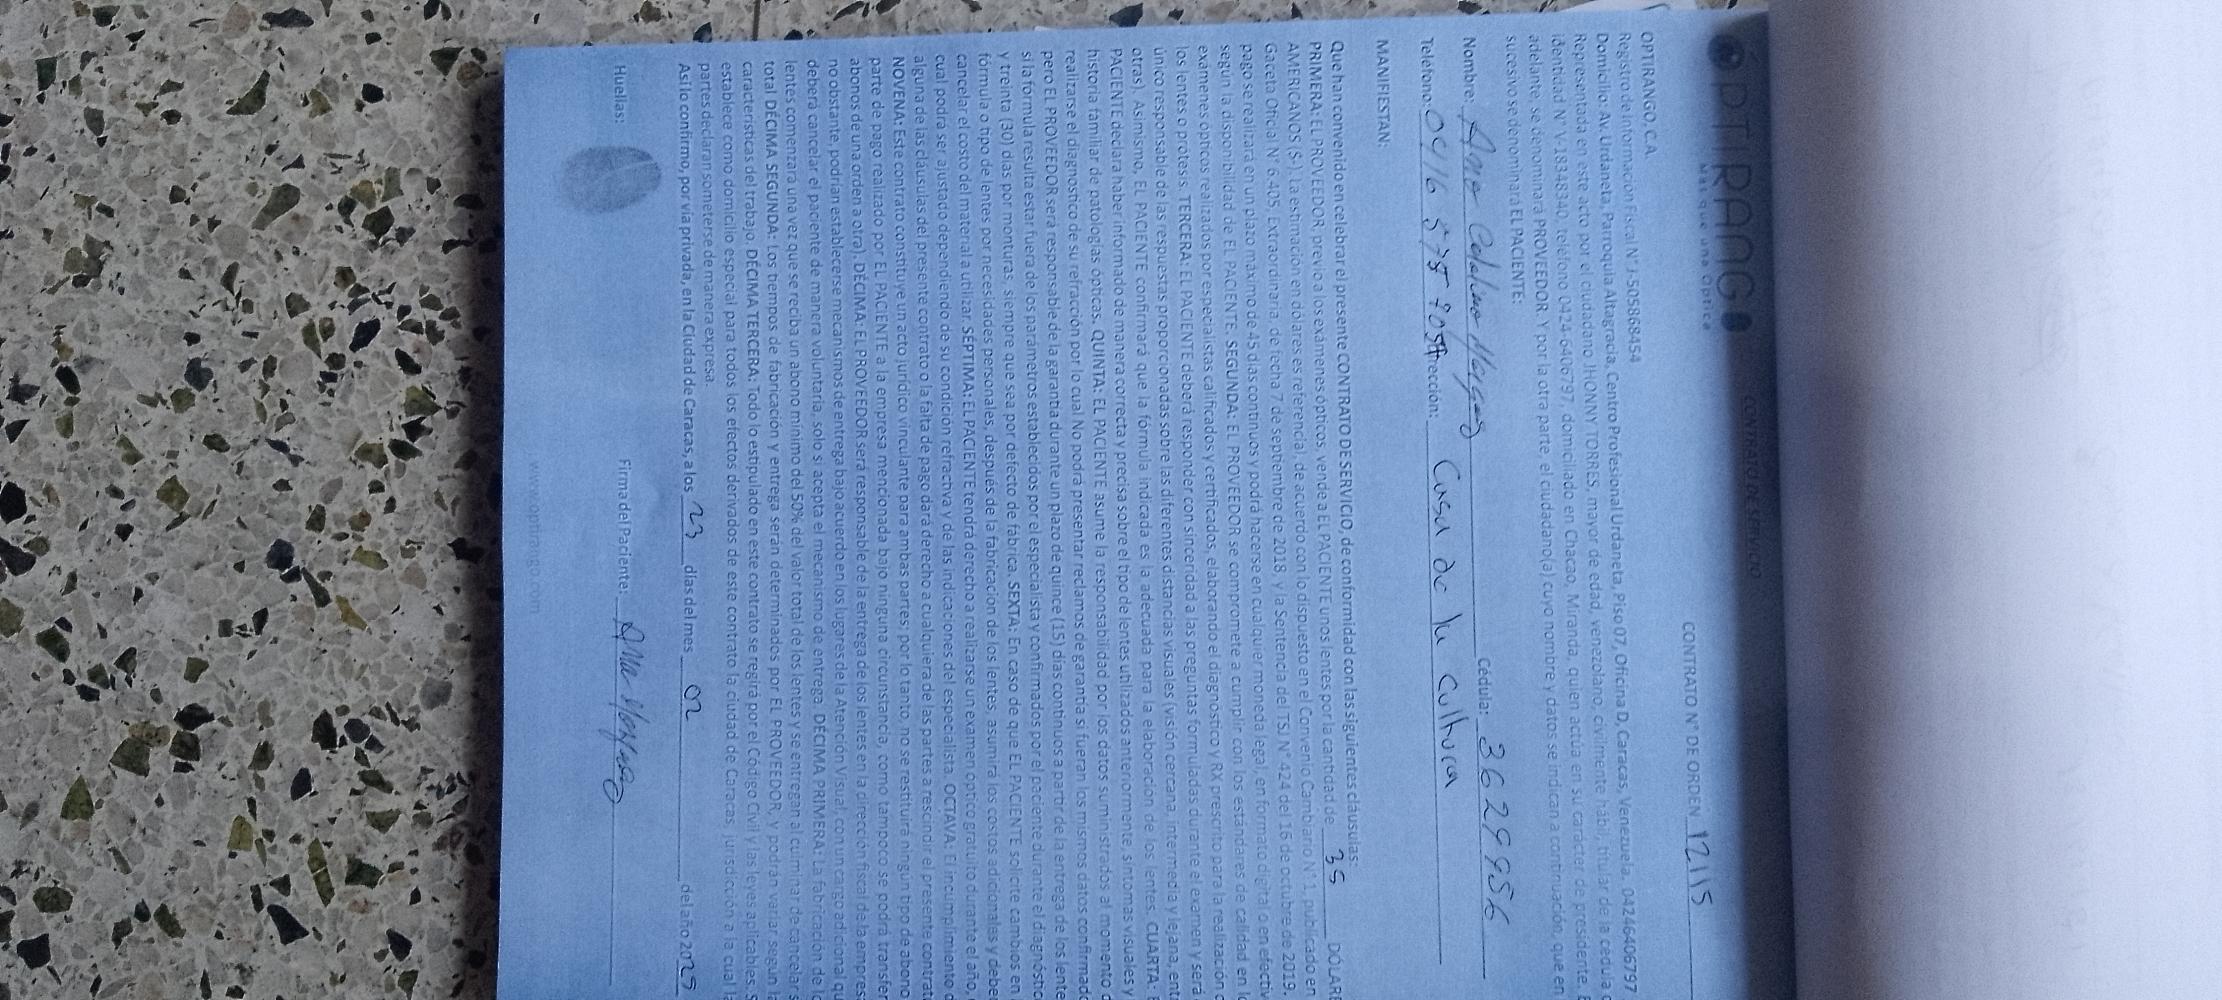 OPTIRANGO
Más que una Óptica
CONTRATO DE SERVICIO
CONTRATO N° DE ORDEN 12115
OPTIRANGO, C.A.
Registro de Información Fiscal N° J-505868454
Domicilio: Av. Urdaneta, Parroquia Altagracia, Centro Profesional Urdaneta, Piso 07, Oficina D, Caracas, Venezuela. 04246406797
Representada en este acto por el ciudadano JHONNY TORRES, mayor de edad, venezolano, civilmente hábil, titular de la cédula
identidad N° V-18348340, teléfono 0424-6406797, domiciliado en Chacao, Miranda, quien actúa en su carácter de presidente. E
adelante se denominará PROVEEDOR. Y por la otra parte, el ciudadano(a) cuyo nombre y datos se indican a continuación, que en
sucesivo se denominará EL PACIENTE:
Nombre: Ana Cédula: 36299956
Teléfono: 0416 578 Dirección: Casa de la cultura
MANIFIESTAN:
Que han convenido en celebrar el presente CONTRATO DE SERVICIO, de conformidad con las siguientes cláusulas:
PRIMERA: EL PROVEEDOR, previo a los exámenes ópticos, vende a EL PACIENTE unos lentes por la cantidad de 35 DÓLARE
AMERICANOS ($-). La estimación en dólares es referencial, de acuerdo con lo dispuesto en el Convenio Cambiario N° 1, publicado en
Gaceta Oficial N° 6.405, Extraordinaria, de fecha 7 de septiembre de 2018, y la Sentencia del TSJ N° 424 del 16 de octubre de 2019.
pago se realizará en un plazo máximo de 45 días continuos y podrá hacerse en cualquier moneda legal, en formato digital o en efectiv
según la disponibilidad de EL PACIENTE. SEGUNDA: EL PROVEEDOR se compromete a cumplir con los estándares de calidad en lo
exámenes ópticos realizados por especialistas calificados y certificados, elaborando el diagnóstico y RX prescrito para la realización d
los lentes o prótesis. TERCERA: EL PACIENTE deberá responder con sinceridad a las preguntas formuladas durante el examen y será
único responsable de las respuestas proporcionadas sobre las diferentes distancias visuales (visión cercana, intermedia y lejana, entr
otras). Asimismo, EL PACIENTE confirmará que la fórmula indicada es la adecuada para la elaboración de los lentes. CUARTA: E
PACIENTE declara haber informado de manera correcta y precisa sobre el tipo de lentes utilizados anteriormente, síntomas visuales y
historia familiar de patologías ópticas. QUINTA: EL PACIENTE asume la responsabilidad por los datos suministrados al momento d
realizarse el diagnóstico de su refracción por lo cual No podrá presentar reclamos de garantía si fueran los mismos datos confirmado
pero EL PROVEEDOR será responsable de la garantía durante un plazo de quince (15) días continuos a partir de la entrega de los lente
si la fórmula resulta estar fuera de los parámetros establecidos por el especialista y confirmados por el paciente durante el diagnóstic
y treinta (30) días por monturas, siempre que sea por defecto de fábrica. SEXTA: En caso de que EL PACIENTE solicite cambios en
fórmula o tipo de lentes por necesidades personales, después de la fabricación de los lentes, asumirá los costos adicionales y debe
cancelar el costo del material a utilizar. SÉPTIMA: EL PACIENTE tendrá derecho a realizarse un examen óptico gratuito durante el año,
cual podrá ser ajustado dependiendo de su condición refractiva y de las indicaciones del especialista. OCTAVA: El incumplimiento d
alguna de las cláusulas del presente contrato o la falta de pago dará derecho a cualquiera de las partes a rescindir el presente contrato
NOVENA: Este contrato constituye un acto jurídico vinculante para ambas partes; por lo tanto, no se restituirá ningún tipo de abono
parte de pago realizado por EL PACIENTE a la empresa mencionada bajo ninguna circunstancia, como tampoco se podrá transfer
abonos de una orden a otra). DÉCIMA: EL PROVEEDOR será responsable de la entrega de los lentes en la dirección fiscal de la empres
no obstante, podrían establecerse mecanismos de entrega bajo acuerdo en los lugares de la Atención Visual, con un cargo adicional qu
deberá cancelar el paciente de manera voluntaria, solo si acepta el mecanismo de entrega. DÉCIMA PRIMERA: La fabricación de lo
lentes comenzará una vez que se reciba un abono mínimo del 50% del valor total de los lentes y se entregan al culminar de cancelar s
total. DÉCIMA SEGUNDA: Los tiempos de fabricación y entrega serán determinados por EL PROVEEDOR, y podrán variar según la
características del trabajo. DÉCIMA TERCERA: Todo lo estipulado en este contrato se regirá por el Código Civil y las leyes aplicables. S
establece como domicilio especial para todos los efectos derivados de este contrato la ciudad de Caracas, jurisdicción a la cual la
partes declaran someterse de manera expresa.
Así lo confirmo, por vía privada, en la Ciudad de Caracas, a los 23 días del mes 02 del año 2025
Huellas: Firma del Paciente: Ana
www.optirango.com